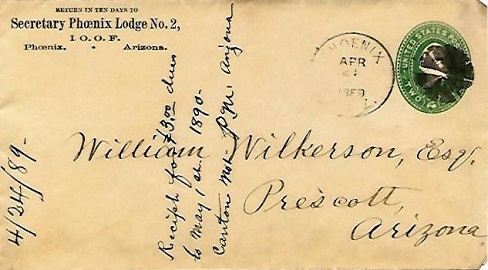 RETURN IN TEN DAYS TO
Secretary Phœnix Lodge No. 2,
I O. O. F.
Phœnix, • Arizona.
PHOENIX
APR
1889
UNITED STATES
William Wilkerson, Esq.
Prescott,
Arizona
4/24/89-
Recipt for $3.00 dues
to May 1st 1890-
Canton No1 P.M. Arizona